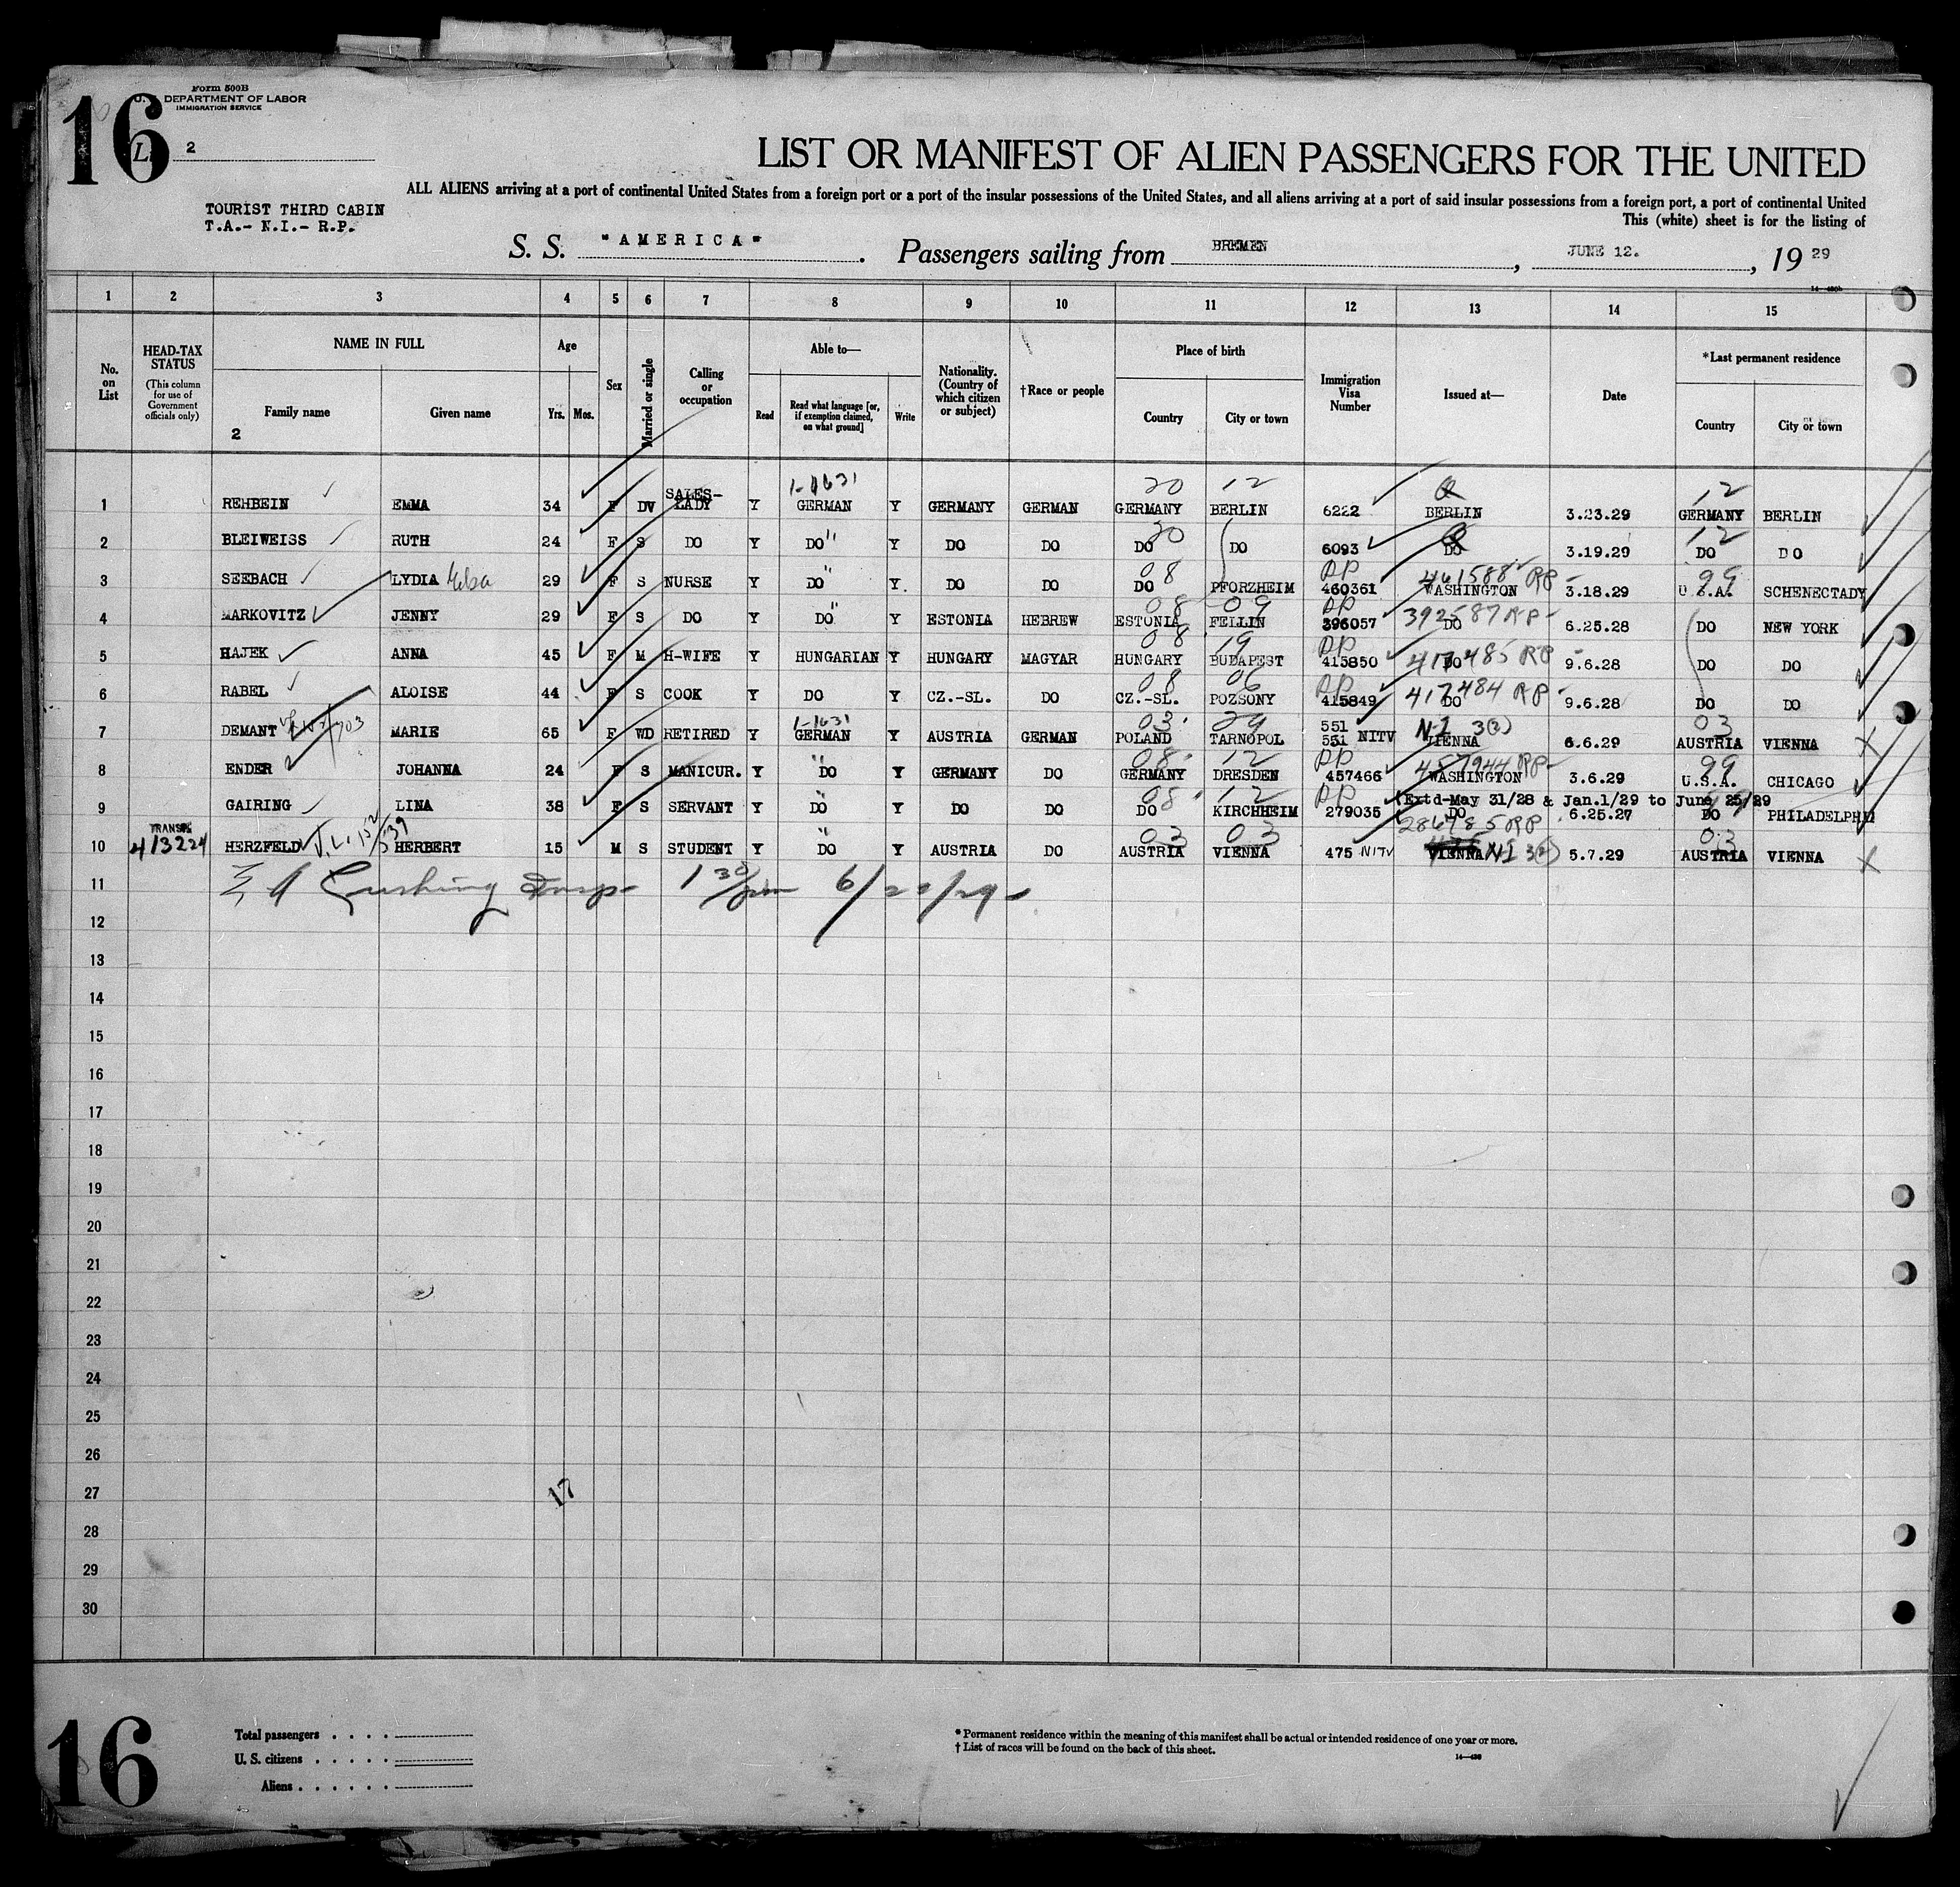 16
Form 500B
U. S. DEPARTMENT OF LABOR
IMMIGRATION SERVICE
L 2
LIST OR MANIFEST OF ALIEN PASSENGERS FOR THE UNITED
ALL ALIENS arriving at a port of continental United States from a foreign port or a port of the insular possessions of the United States, and all aliens arriving at a port of said insular possessions from a foreign port, a port of continental United
This (white) sheet is for the listing of
TOURIST THIRD CABIN
T.A.- N.I.- R.P.
S. S. "AMERICA" . Passengers sailing from BREMEN , JUNE 12. , 19 29
1 2 3 4 5 6 7 8 9 10 11 12 13 14 15
No. on List
HEAD-TAX STATUS (This column for use of Government officials only)
NAME IN FULL
Family name Given name
2
Age
Yrs. Mos.
Sex
Married or single
Calling or occupation
Able to—
Read Read what language [or, if exemption claimed, on what ground] Write
Nationality. (Country of which citizen or subject)
†Race or people
Place of birth
Country City or town
Immigration Visa Number
Issued at—
Date
*Last permanent residence
Country City or town
1-1631 20 12 12
1 REHBEIN EMMA 34 F DV SALES-LADY Y GERMAN Y GERMANY GERMAN GERMANY BERLIN 6222 BERLIN 3.23.29 GERMANY BERLIN
20 12
2 BLEIWEISS RUTH 24 F S DO Y DO " Y DO DO DO DO 6093 DO 3.19.29 DO DO
08 PP 461588 RP- 99
3 SEEBACH LYDIA 29 F S NURSE Y DO " Y. DO DO DO PFORZHEIM 460361 WASHINGTON 3.18.29 U.S.A. SCHENECTADY
08 09 PP 392587 RP-
4 MARKOVITZ JENNY 29 F S DO Y DO " Y ESTONIA HEBREW ESTONIA FELLIN 396057 DO 6.25.28 DO NEW YORK
08 19 PP 417485 RP-
5 HAJEK ANNA 45 F M H-WIFE Y HUNGARIAN Y HUNGARY MAGYAR HUNGARY BUDAPEST 415850 DO 9.6.28 DO DO
08 06 PP 417484 RP-
6 RABEL ALOISE 44 F S COOK Y DO Y CZ.-SL. DO CZ.-SL. POZSONY 415849 DO 9.6.28 DO DO
1-1631 03 29 551 N-I 3(2) 03
7 DEMANT MARIE 65 F WD RETIRED Y GERMAN Y AUSTRIA GERMAN POLAND TARNOPOL 551 NITV VIENNA 6.6.29 AUSTRIA VIENNA
08 12 PP 457944 RP- 99
8 ENDER JOHANNA 24 F S MANICUR. Y " DO Y GERMANY DO GERMANY DRESDEN 457466 WASHINGTON 3.6.29 U.S.A. CHICAGO
08 12 PP (Extd-May 31/28 & Jan.1/29 to June 25/29
9 GAIRING LINA 38 F S SERVANT Y " DO Y DO DO DO KIRCHHEIM 279035 DO 6.25.27 DO PHILADELPHI
TRANSIT 03 03 286785 RP 03
10 413224 HERZFELD HERBERT 15 M S STUDENT Y " DO Y AUSTRIA DO AUSTRIA VIENNA 475 NITV VIENNA NI 3(2) 5.7.29 AUSTRIA VIENNA
11 Cushing Insp- 1 30/pm 6/22/29-
12
13
14
15
16
17
18
19
20
21
22
23
24
25
26
27 17
28
29
30
16
Total passengers . . . .
U. S. citizens . . . . .
Aliens . . . . . .
* Permanent residence within the meaning of this manifest shall be actual or intended residence of one year or more.
† List of races will be found on the back of this sheet.